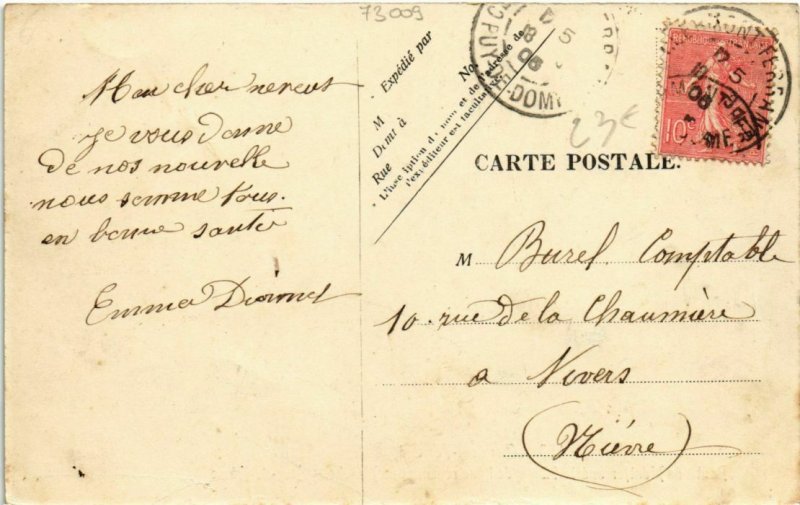 73009
Mon cher neveux
je vous donne
de nos nouvelle
nous somme tous
en bonne santé
Emma
Expédié par
M
Demt à
Rue No
L'inscription du nom et de l'adresse de
l'expéditeur est facultative
PUY-DE-DOME
CLERMONT-FERRAND
PUY-DE-DOME
10c
23€
CARTE POSTALE.
M Burel Comptable
10. rue de la Chaumière
a Nevers
(Nièvre)